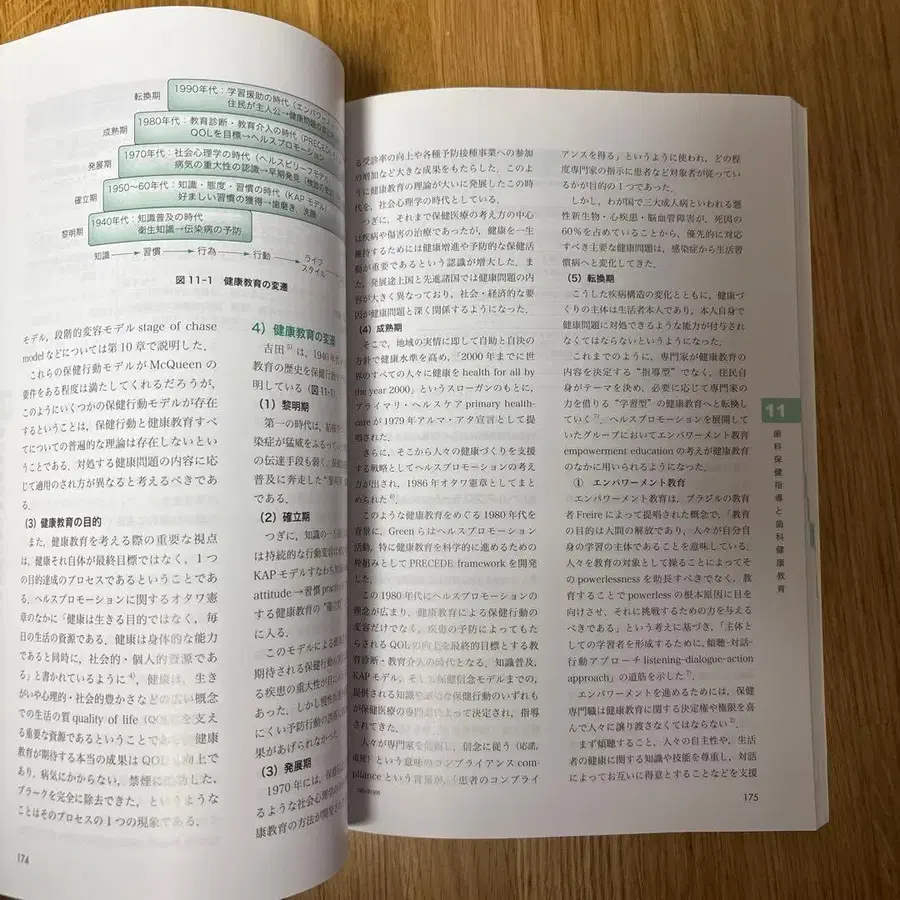 転換期
1990年代：学習援助の時代（エンパワ
住民が主人公→健康問題の
成熟期
1980年代：教育診断・教育介入の時代（PRECEDE
QOLを目標→ヘルスプロモーション
発展期
1970年代：社会心理学の時代（ヘルスビリーフモデル）
病気の重大性の認識→早期発見（検診の
確立期
1950〜60年代：知識・態度・習慣の時代（KAP モデル）
好ましい習慣の獲得→歯磨き，洗顔
黎明期
1940年代：知識普及の時代
衛生知識→伝染病の予防
知識 → 習慣 → 行為 → 行動 → ライフ
スタイル
図 11-1 健康教育の変遷
モデル，段階的変容モデル stage of chase
model などについては第 10 章で説明した．
これらの保健行動モデルが McQueen の
要件をある程度は満たしてくれるだろうが，
このようにいくつかの保健行動モデルが存在
するということは，保健行動と健康教育すべ
てについての普遍的な理論は存在しないとい
うことである．対処する健康問題の内容に応
じて適用のされ方が異なると考えるべきであ
る．
（3）健康教育の目的
また，健康教育を考える際の重要な視点
は，健康それ自体が最終目標ではなく，1つ
の目的達成のプロセスであるということであ
る．ヘルスプロモーションに関するオタワ憲
章のなかに「健康は生きる目的ではなく，毎
日の生活の資源である．健康は身体的な能力
であると同時に，社会的・個人的資源であ
る」と書かれているように4)，健康は，生き
がいや心理的・社会的豊かさなどの広い概念
での生活の質 quality of life（QOL）を支え
る重要な資源であるということであ 健康
教育が期待する本当の成果は QOL の向上で
あり，病気にかからない，禁煙に成功した，
プラークを完全に除去できた，というような
ことはそのプロセスの 1 つの現象である．
174
4）健康教育の変遷
吉田5) は，1940 年代
の教育の歴史を保健行
明している（図 11-1）
（1）黎明期
第一の時代は，結核
染症が猛威をふるって
の伝達手段も弱く，保健
普及に奔走した“黎明
である．
（2）確立期
つぎに，知識の一方
は持続的な行動変容は
KAP モデルすなわち
attitude → 習慣 practice
する健康教育の“確立
に入る．
このモデルによる健康
期待される保健行動の
る疾患の重大性が目に
あった．しかし慢性疾
にくい予防行動の
果があげられなかった
（3）発展期
1970 年には，保健
るような社会心理学的
康教育の方法が開発され
る受診率の向上や各種予防接種事業への参加
の増加など大きな成果をもたらした．このよ
うに健康教育の理論が大いに発展したこの時
代を，社会心理学の時代としている．
つぎに，それまで保健医療の考え方の中心
は疾病や傷害の治療であったが，健康を一生
維持するためには健康増進や予防的な保健活
動が重要であるという認識が増大した．ま
た，発展途上国と先進諸国では健康問題の内
容が大きく異なっており，社会・経済的な要
因が健康問題と深く関係するようになった．
（4）成熟期
そこで，地域の実情に即して自助と自決の
方針で健康水準を高め，「2000 年までに世
界のすべての人々に健康を health for all by
the year 2000」というスローガンのもとに，
プライマリ・ヘルスケア primary health-
care が 1979 年アルマ・アタ宣言として提
唱された．
さらに，そこから人々の健康づくりを支援
する戦略としてヘルスプロモーションの考え
方が出され，1986 年オタワ憲章としてまと
められた6)．
このような健康教育をめぐる 1980 年代を
背景に，Green らはヘルスプロモーション
活動，特に健康教育を科学的に進めるための
枠組みとして PRECEDE framework を開発
した．
この 1980 年代にヘルスプロモーションの
理念が広まり，健康教育による保健行動の
変容だけでなく，疾患の予防によってもた
らされる QOL の向上を最終的目標とする教
育診断・教育介入の時代となる．知識普及，
KAP モデル，そして保健信念モデルまでの，
提供される知識や適切な保健行動のいずれも
が保健医療の専門家によって決定され，指導
されてきた．
人々が専門家を信頼し，信念に従う（応諾，
追従）という意味のコンプライアンス com-
pliance という言葉が，「患者のコンプライ
アンスを得る」というように使われ，どの程
度専門家の指示に患者など対象が従ってい
るかが目的の 1 つであった．
しかし，わが国で三大成人病といわれる悪
性新生物・心疾患・脳血管障害が，死因の
60％を占めていることから，優先的に対応
すべき主要な健康問題は，感染症から生活習
慣病へと変化してきた．
（5）転換期
こうした疾病構造の変化とともに，健康づ
くりの主体は生活者本人であり，本人自身で
健康問題に対処できるような能力が付与され
なくてはならないというようになった．
これまでのように，専門家が健康教育の
内容を決定する“指導型”でなく，住民自
身がテーマを決め，必要に応じて専門家の
力を借りる“学習型”の健康教育へと転換し
ていく7)．ヘルスプロモーションを展開して
いたグループにおいてエンパワーメント教育
empowerment education の考えが健康教育
のなかに用いられるようになった．
① エンパワーメント教育
エンパワーメント教育は，ブラジルの教育
者 Freire によって提唱された概念で，「教育
の目的は人間の解放であり，人々が自分自
身の学習の主体であることを意味している．
人々を教育の対象として操ることによってそ
の powerlessness を助長すべきでなく，教
育することで powerless の根本原因に目を
向けさせ，それに挑戦するための力を与える
べきである」という考えに基づき，「主体と
しての学習者を形成するために，傾聴-対話-
行動アプローチ listening-dialogue-action
approach」の道筋を示した7)．
エンパワーメントを進めるためには，保健
専門職は健康教育に関する決定権や権限を喜
んで人々に譲り渡さなくてはならない2)．
まず傾聴すること，人々の自主性や，生活
者の健康に関する知識や技能を尊重し，対話
によってお互いに得意とすることなどを支援
11
歯科保健指導と歯科健康教育
175